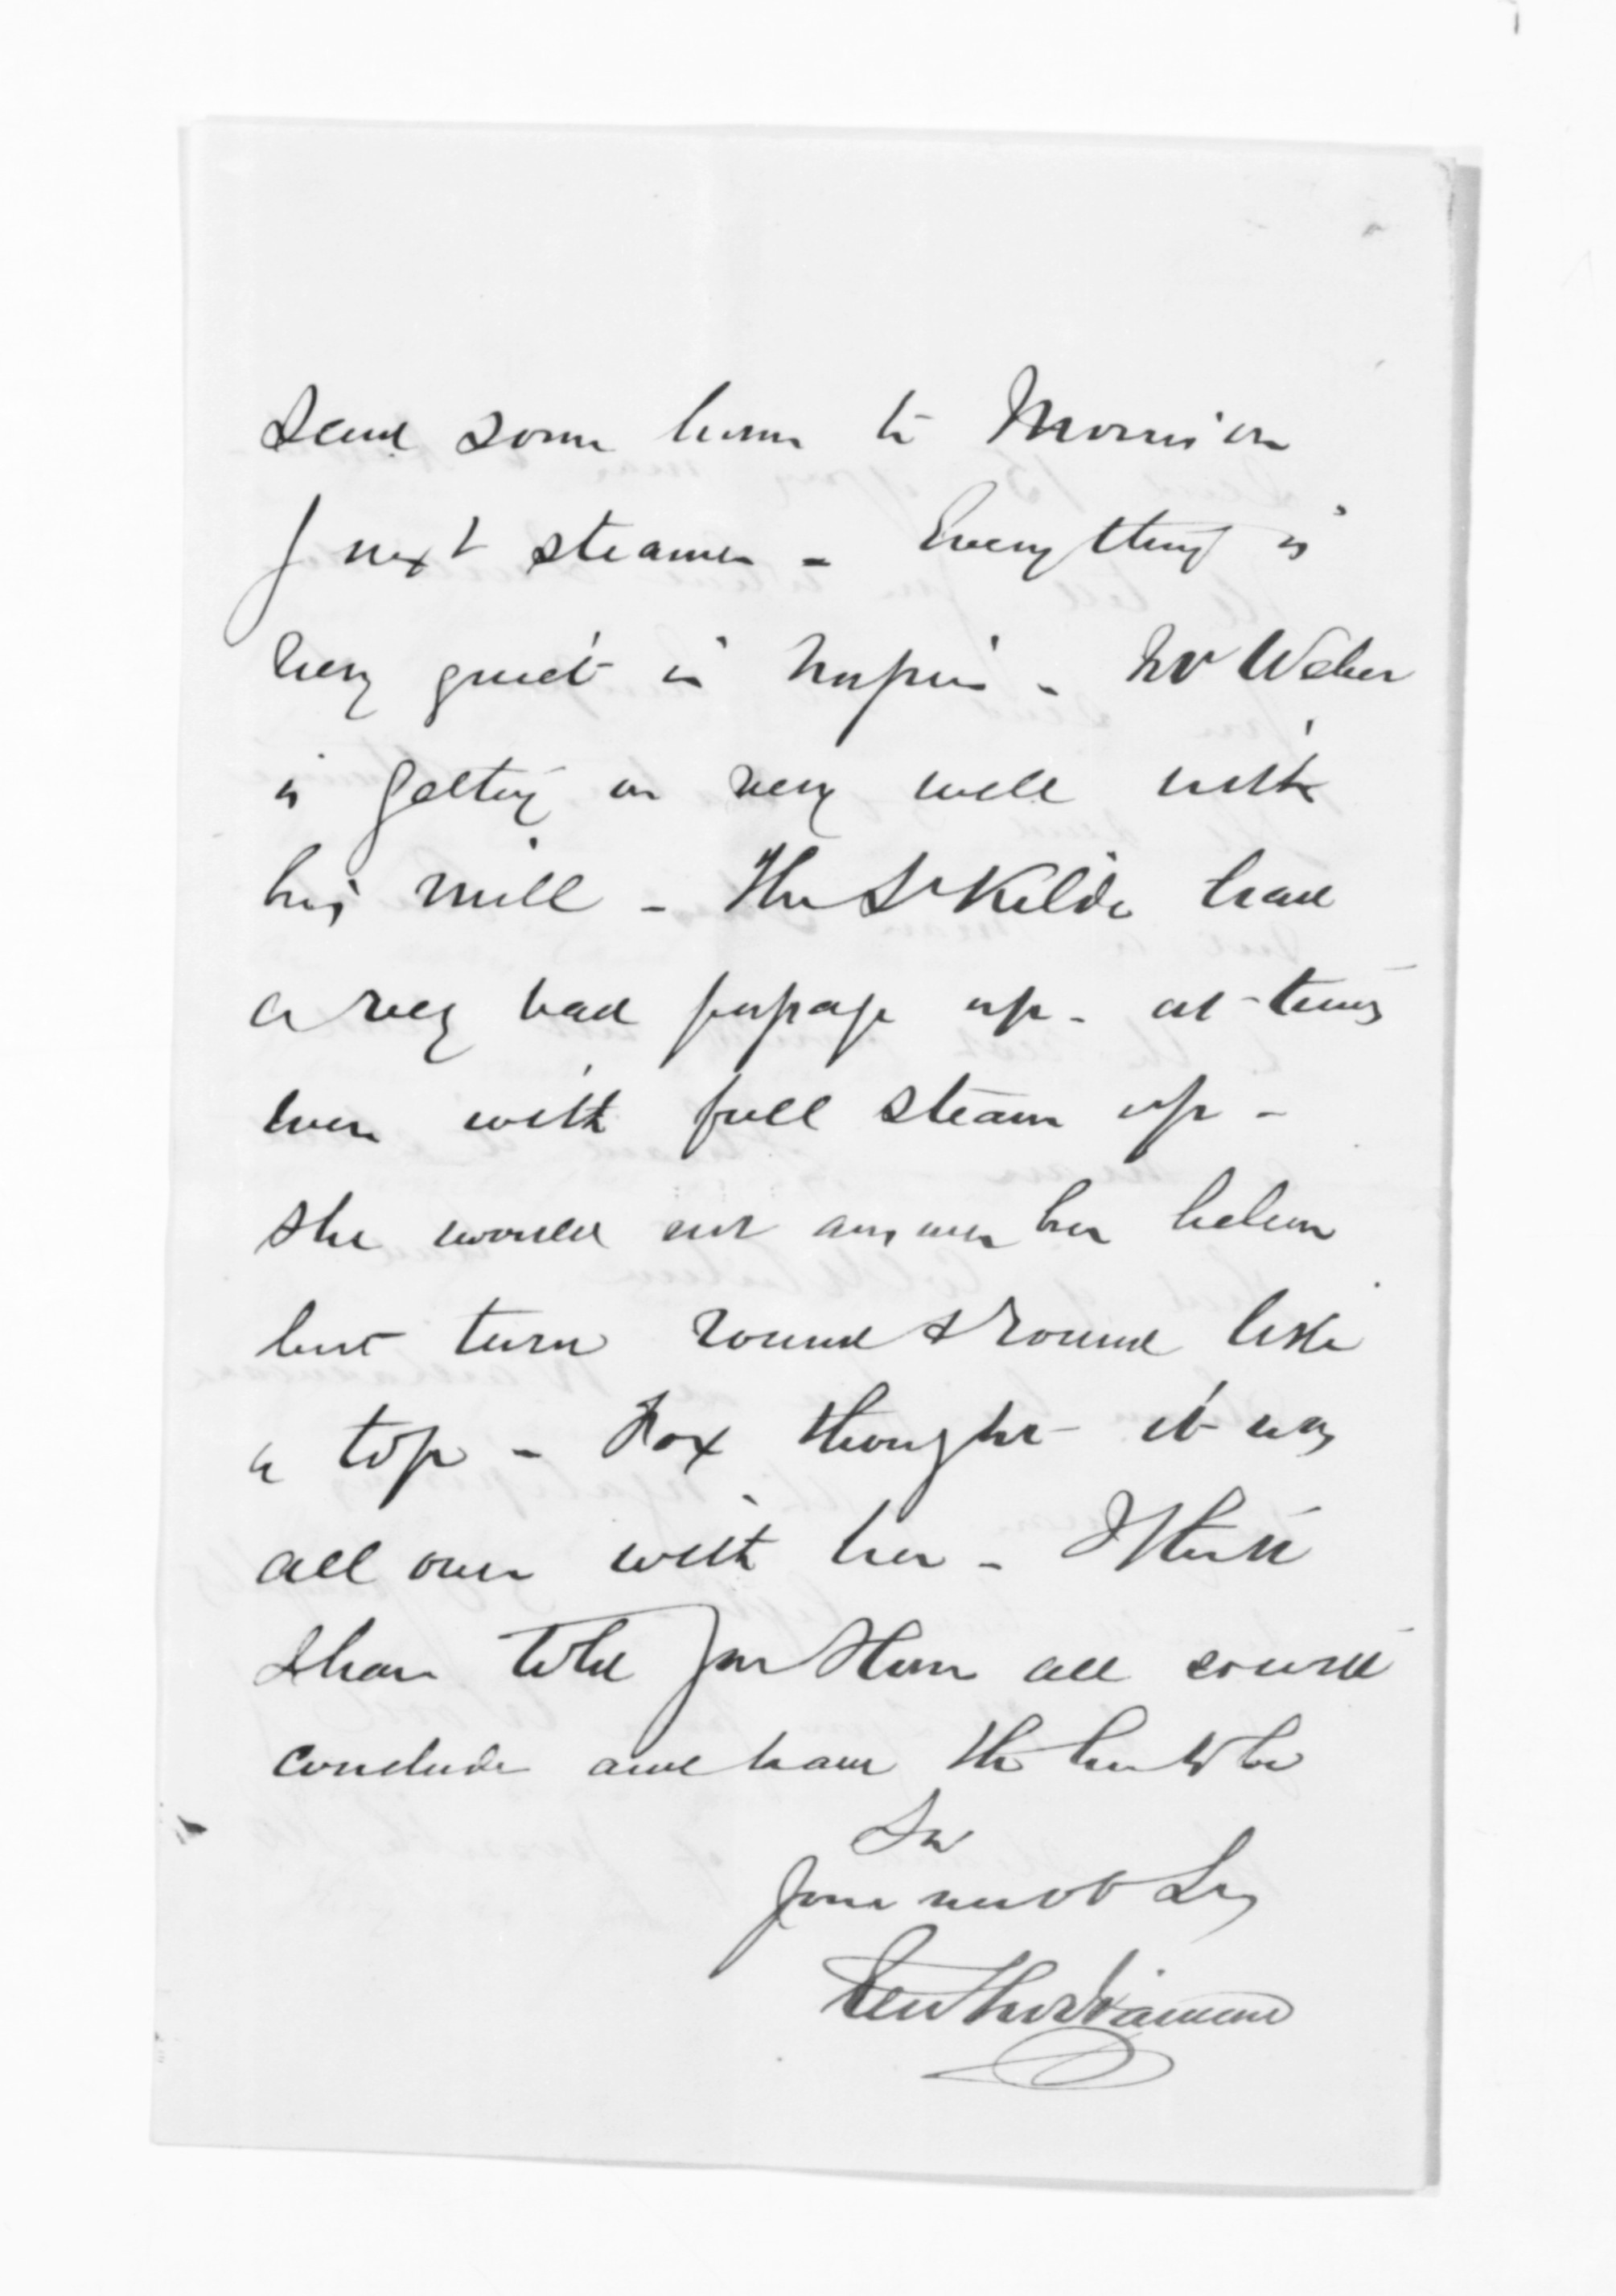 send some home to Morrison
p next steamer - Everything is
very quiet in Napier - Mr Weber
is getting on very well with
his mill - The St Kilda had
a very bad passage up - at times
even with full steam up -
she would not answer her helm
but turn round & round like
a top - Fox thought it was
all over with her - I think
I have told you them all so will
conclude and have the to be
Sir
Your most Sy